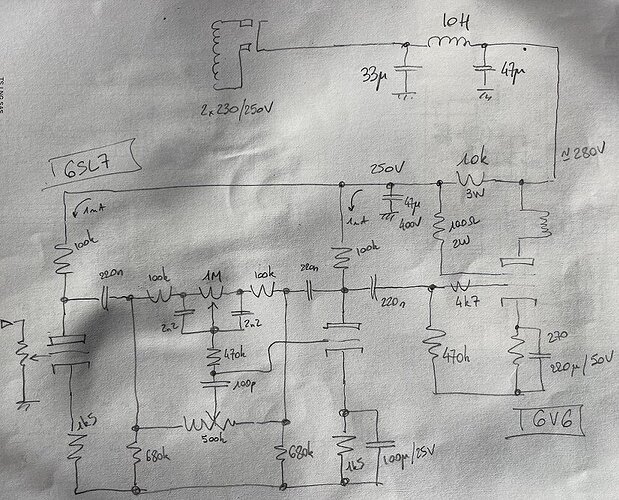 10H
33µ
47µ
2x230/250V
6SL7
≃280V
250V
10k
3W
1mA
47µ
400V
1mA
100Ω
2W
100k
100k
220n
100k
1M
100k
220n
220n
4k7
2n2
2n2
470k
270
220µ/50V
470k
100p
6V6
1k5
500k
680k
680k
1k5
100µ/25V